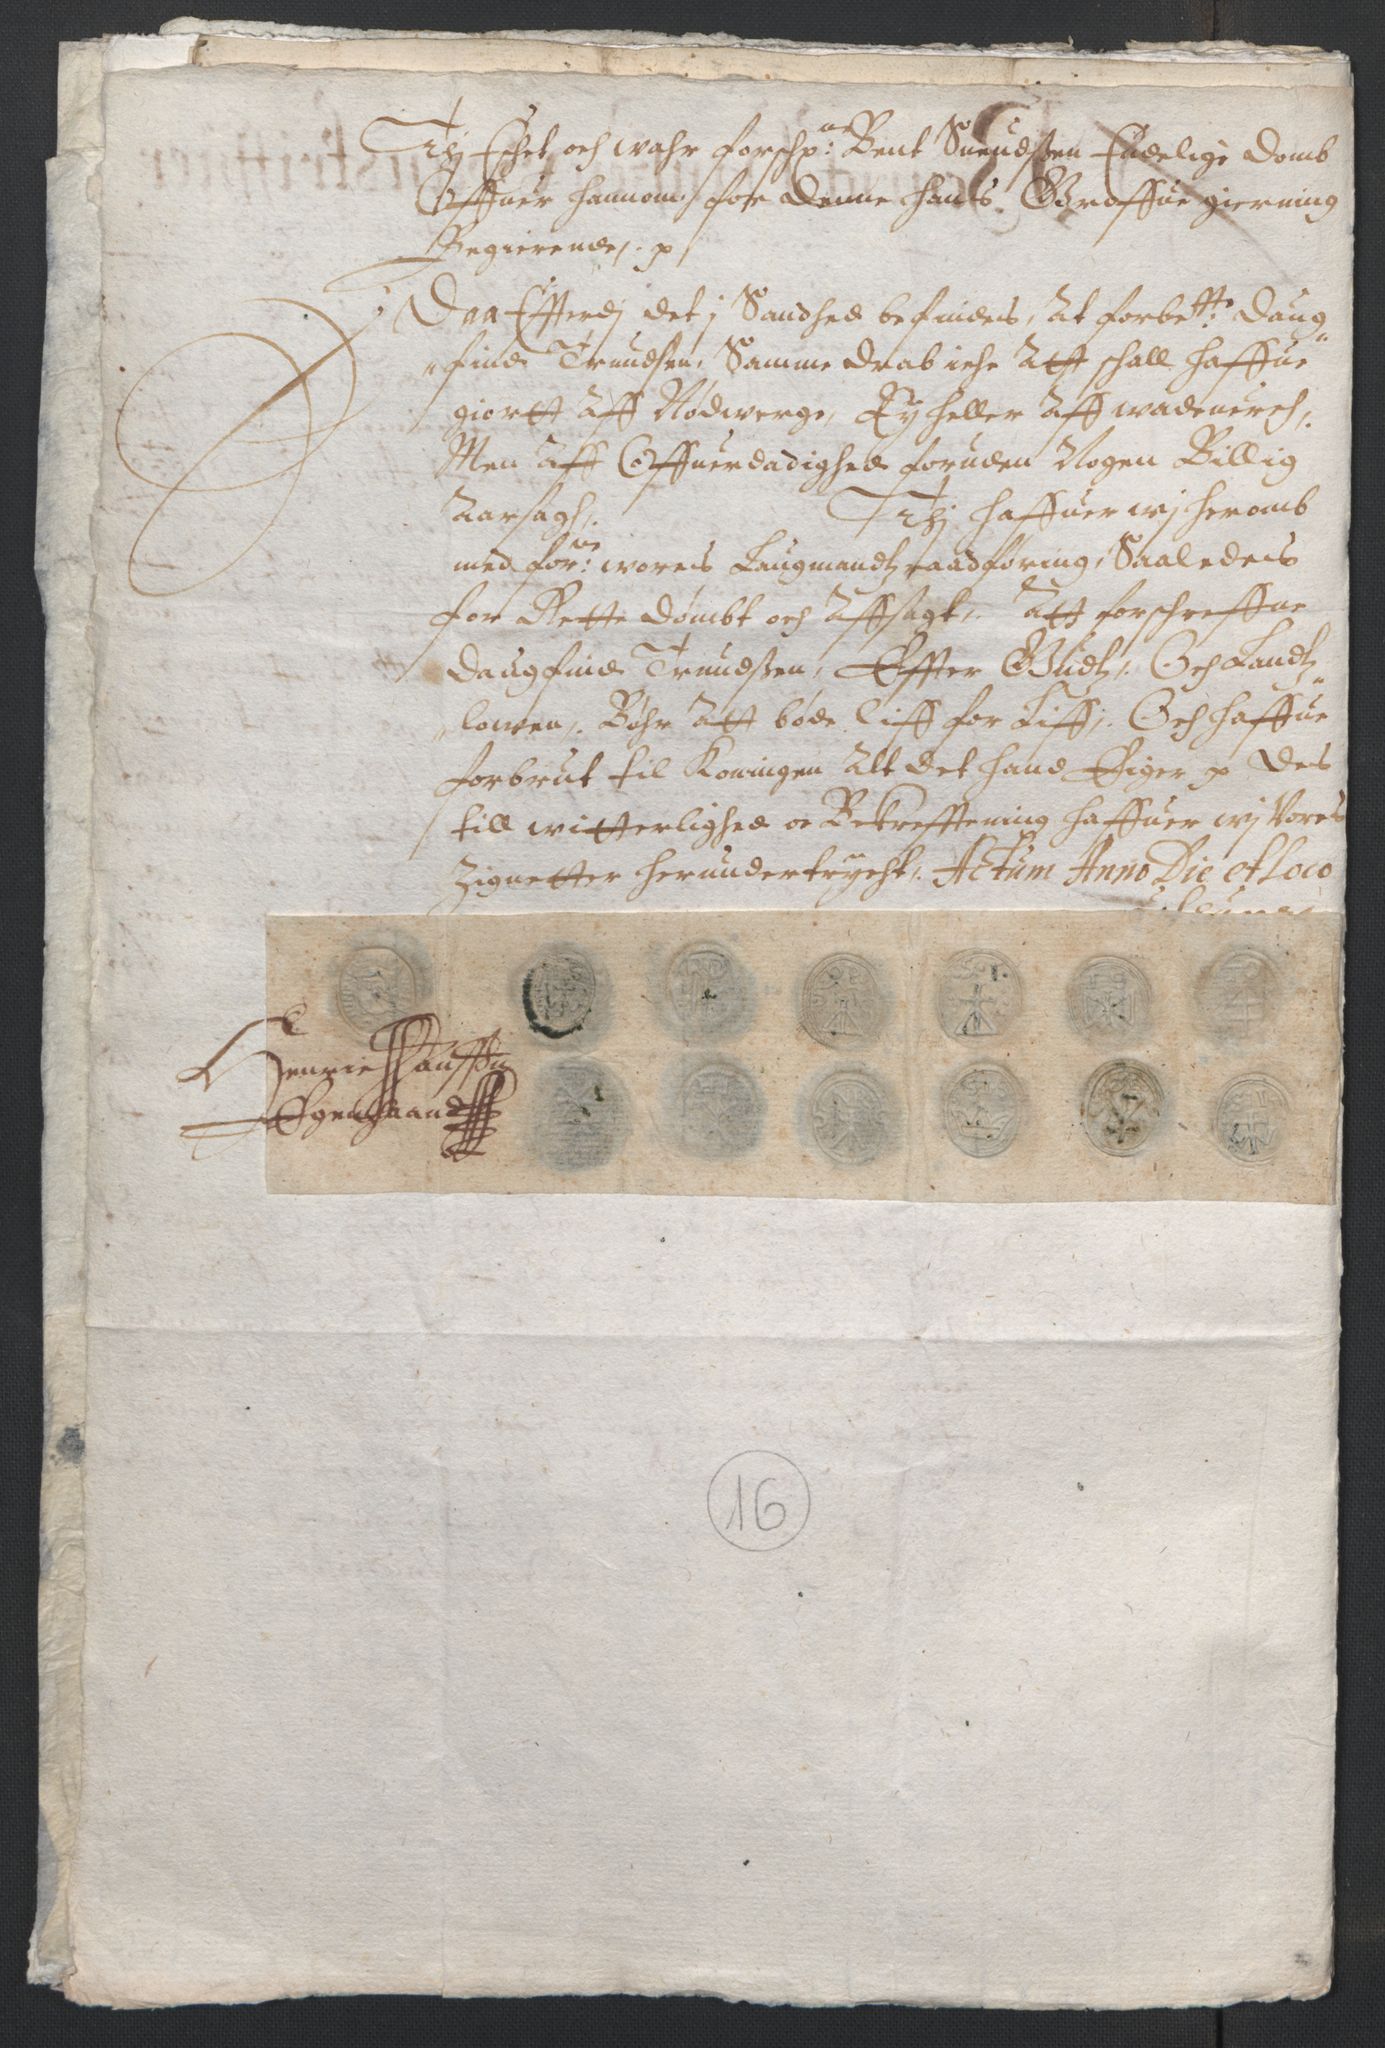 Thj Eschet och wahr forschp:ne Bent Suendßen Endelige domb
Offuer hannom for denne hans Groffue gierning
Begierendes. p
Daa Efftterdj det j Sandhed befindes, At forbe:tte Daug„
„find Trundsen, Samme drab iche Att schall haffue
giortt Aff Nødwerge, Ey heller Aff wadeuerch,
Men Aff Offuerdadighed foruden Nogen Billig
Aarsagh. Thj haffuer wj heromb
med for:ne wores Laugmandtz raadføring, Saaledeis
for Rette dømbt och Affsagt, Att forschreffne
Daugfind Trundßen, Effter Gudtz, Och Landtz„
„lowen, Bøhr Att bøde liff for Liff, Och haffue
forbrut til Koningen Alt det hand Eiger p des
till witterlighed oc Bekrefftening haffuer wj Vores
Zignetter herundertrycht. Actum Anno Die et Loco
Henrich Hanßen
Egenhaand
16